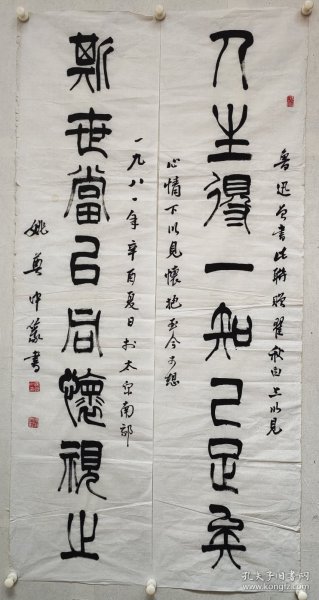 魯迅曾書此聯贈瞿秋白上以見
人生得一知己足矣
心情下以見懷抱至今可想
一九八一年辛酉夏日於太原南郊
斯世當以同懷視之
姚奠中篆書
孔夫子旧书网